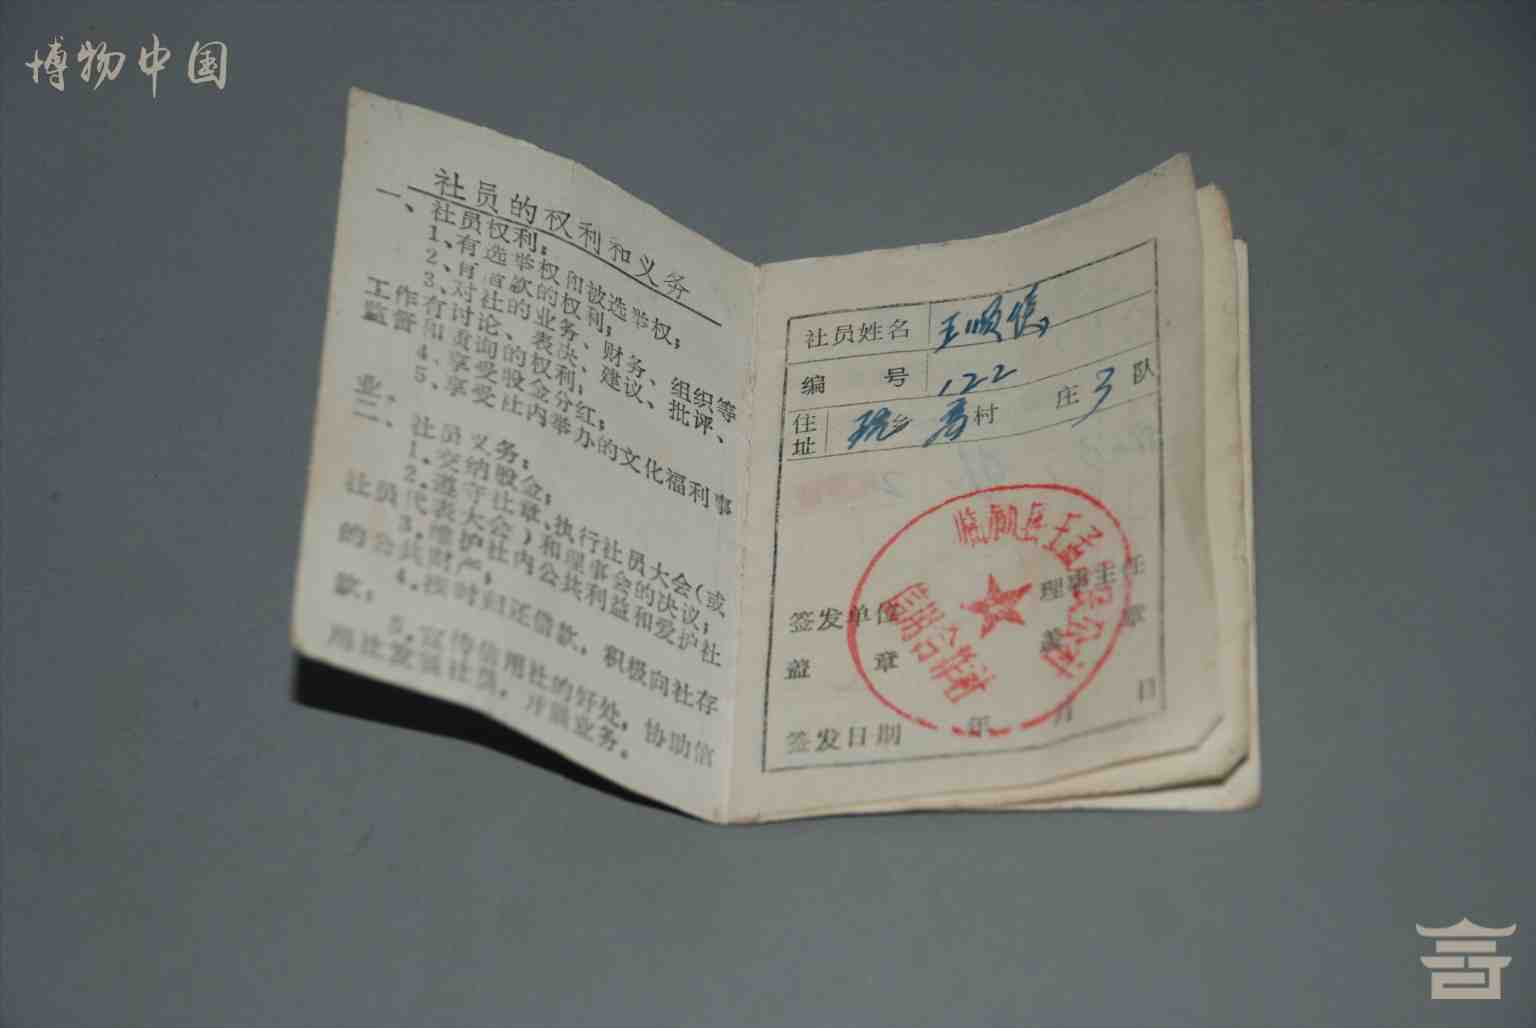 博物中国
社员的权利和义务
一、社员权利：
1、有选举权和被选举权；
2、有存款的权利；
3、对社的业务、财务、组织等
工作有讨论、表决、建议、批评、
监督和质询的权利；
4、享受股金分红；
5、享受社内举办的文化福利事
业。
二、社员义务：
1.交纳股金；
2.遵守社章、执行社员大会（或
社员代表大会）和理事会的决议；
3.维护社内公共利益和爱护社
的公共财产；
4.按时归还借款，积极向社存
款；
5.宣传信用社的好处，协助信
用社发展社员，开展业务。
社员姓名 王顺
编号 122
住址 乡 村 庄 3 队
签发单位
盖章
理事主任
盖章
签发日期 年 月 日
王孟 公社
信用合作社